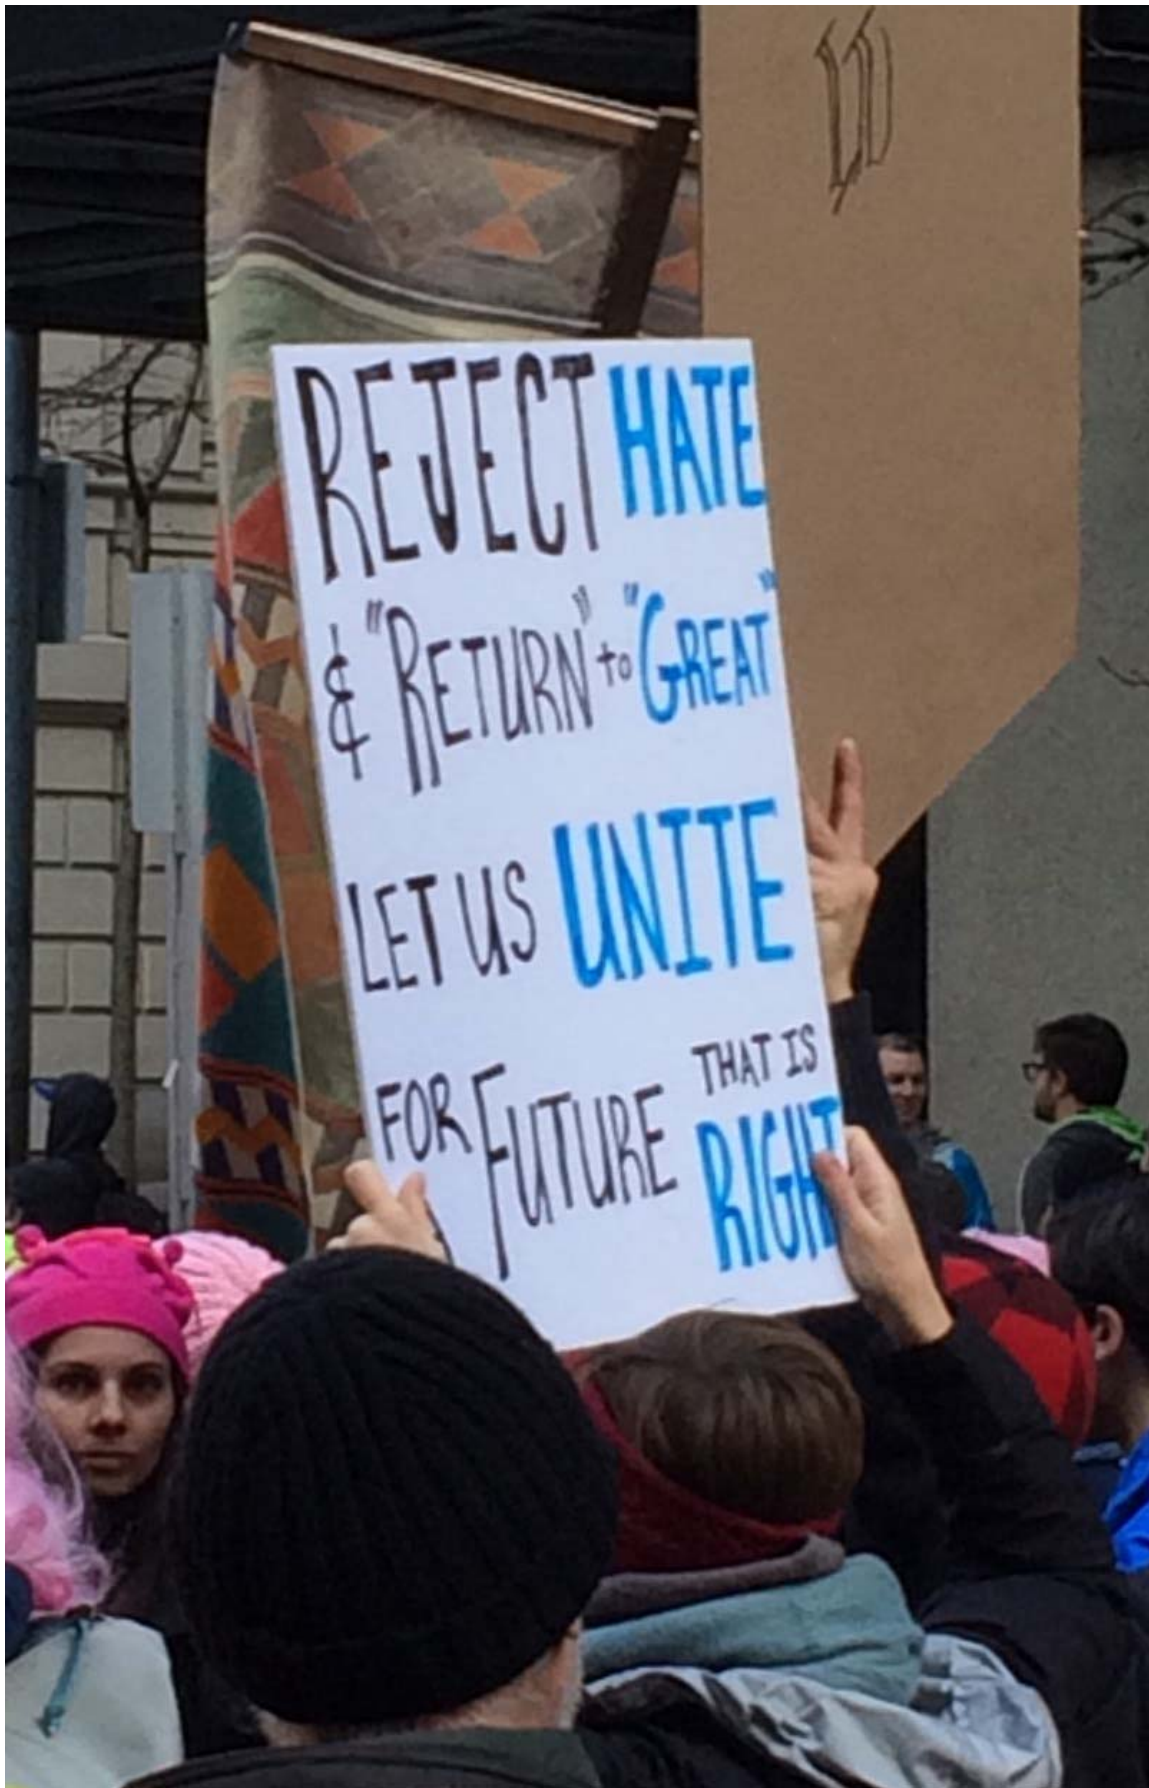 REJECT HATE
& "RETURN" to "GREAT"
LET US UNITE
FOR FUTURE THAT IS
RIGHT